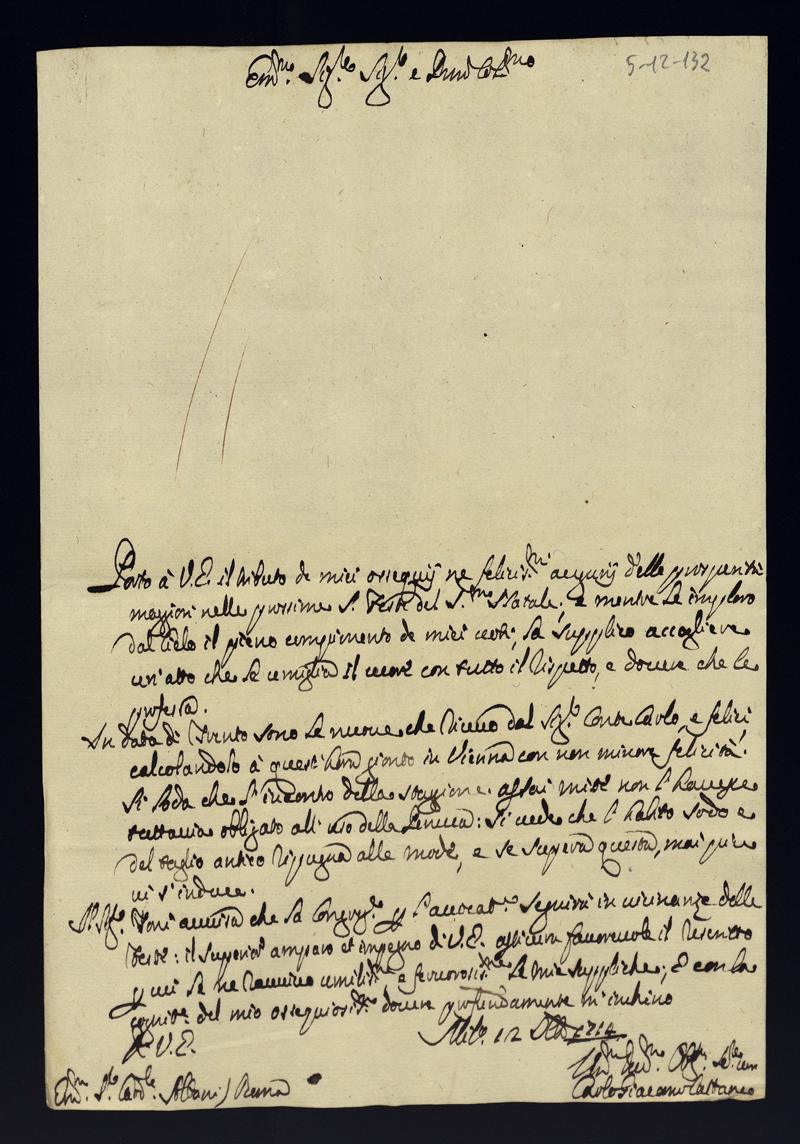 Em.mo Sig.re Sig.re e Pron Col.mo
5-12-132
Porto à V.E. il tributo de miei ossequij ne felicis.mi augurij delle prosperità
magiori nelle prossime S.te feste del S.mo Natale; e mentre Le imploro
dal Cielo il pieno compimento de miei voti, La supplico accogliere
un'atto che Le umiglia il cuore con tutto il rispetto, e dovere che le
professa.
In data di Trento sono Le nuove che ricevo dal Sig.r Conte Carlo, e felici,
calcolandolo à quest'hora gionto in Vienna con non minore felicità.
Si loda che l'incontro della stagione assai mite non l'havesse
tuttavia obligato all'uso della : Si vede che l'habito sodo e
del taglio antico rippugna alle mode, e se supera questa, mai più
vi s'induce.
Il Sig.r Toni avvisa che La Congreg.e p l'avvocat.a seguirà in vicinanze delle
feste: il superior amparo et impegno di V.E. assicura favorevole il rescritto
p cui Le ne ravvivo umilis.e, e fervorosis.me Le mie suppliche; E con la
del mio ossequiosis.mo dovere profundamente m'inchino
D V.E.
Mil.o 12 Xbre 1714
Um.mo Dev.mo Obl.mo Se.re
Carlo Giacomo Cattaneo
Em.mo S.r Card.le Albani / Roma